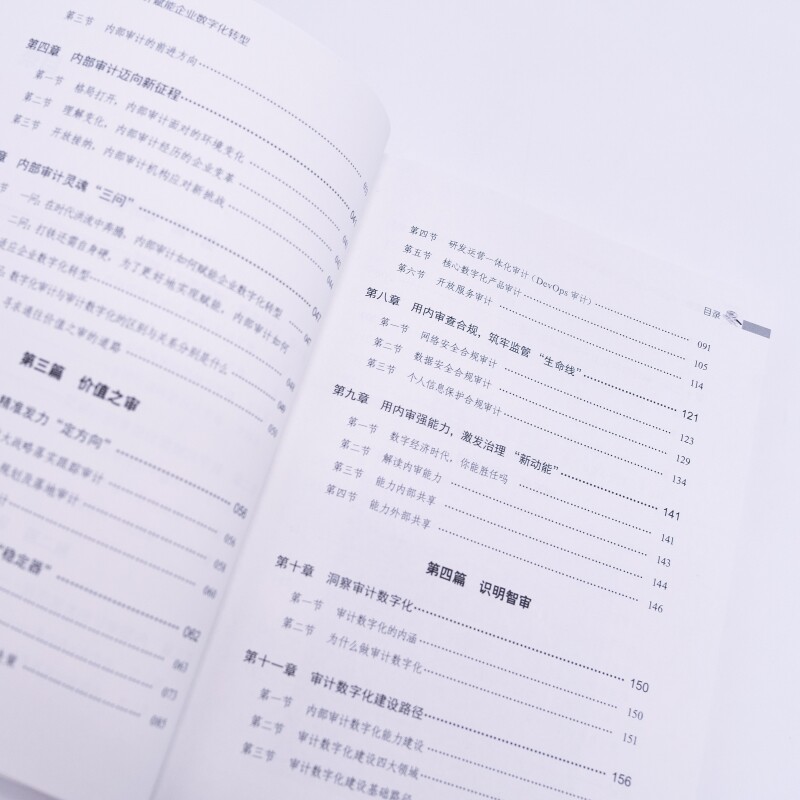 赋能企业数字化转型
第三节 内部审计的前进方向
第四章 内部审计迈向新征程
第一节 格局打开，内部审计面对的环境变化
第二节 理解变化，内部审计经历的企业变革
第三节 开放接纳，内部审计机构应对新挑战
章 内部审计灵魂“三问” 041
节 一问：在时代洪流中奔腾，内部审计如何赋能企业数字化转型
二问：打铁还需自身硬，为了更好地实现赋能，内部审计如何
适应企业数字化转型 047
数字化审计与审计数字化的区别与关系分别是什么
寻求通往价值之审的道路
第三篇 价值之审
精准发力“定方向” 056
大战略落实跟踪审计 056
规划及落地审计 058
计 060
“稳定器” 062
063
073
085
目录
第四节 研发运营一体化审计（DevOps 审计） 091
第五节 核心数字化产品审计 105
第六节 开放服务审计 114
第八章 用内审查合规，筑牢监管“生命线” 121
第一节 网络安全合规审计 123
第二节 数据安全合规审计 129
第三节 个人信息保护合规审计 134
第九章 用内审强能力，激发治理“新动能” 141
第一节 数字经济时代，你能胜任吗 141
第二节 解读内审能力 143
第三节 能力内部共享 144
第四节 能力外部共享 146
第四篇 识明智审
第十章 洞察审计数字化 150
第一节 审计数字化的内涵 150
第二节 为什么做审计数字化 151
第十一章 审计数字化建设路径 156
第一节 内部审计数字化能力建设
第二节 审计数字化建设四大领域
第三节 审计数字化建设基础路径